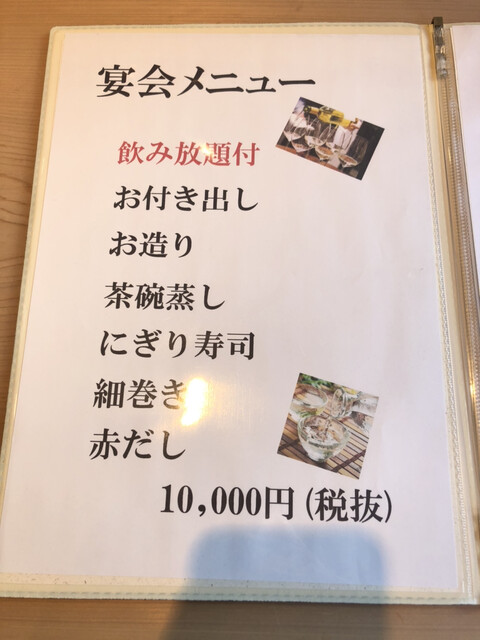 宴会メニュー
飲み放題付
お付き出し
お造り
茶碗蒸し
にぎり寿司
細巻き
赤だし
10,000円(税抜)